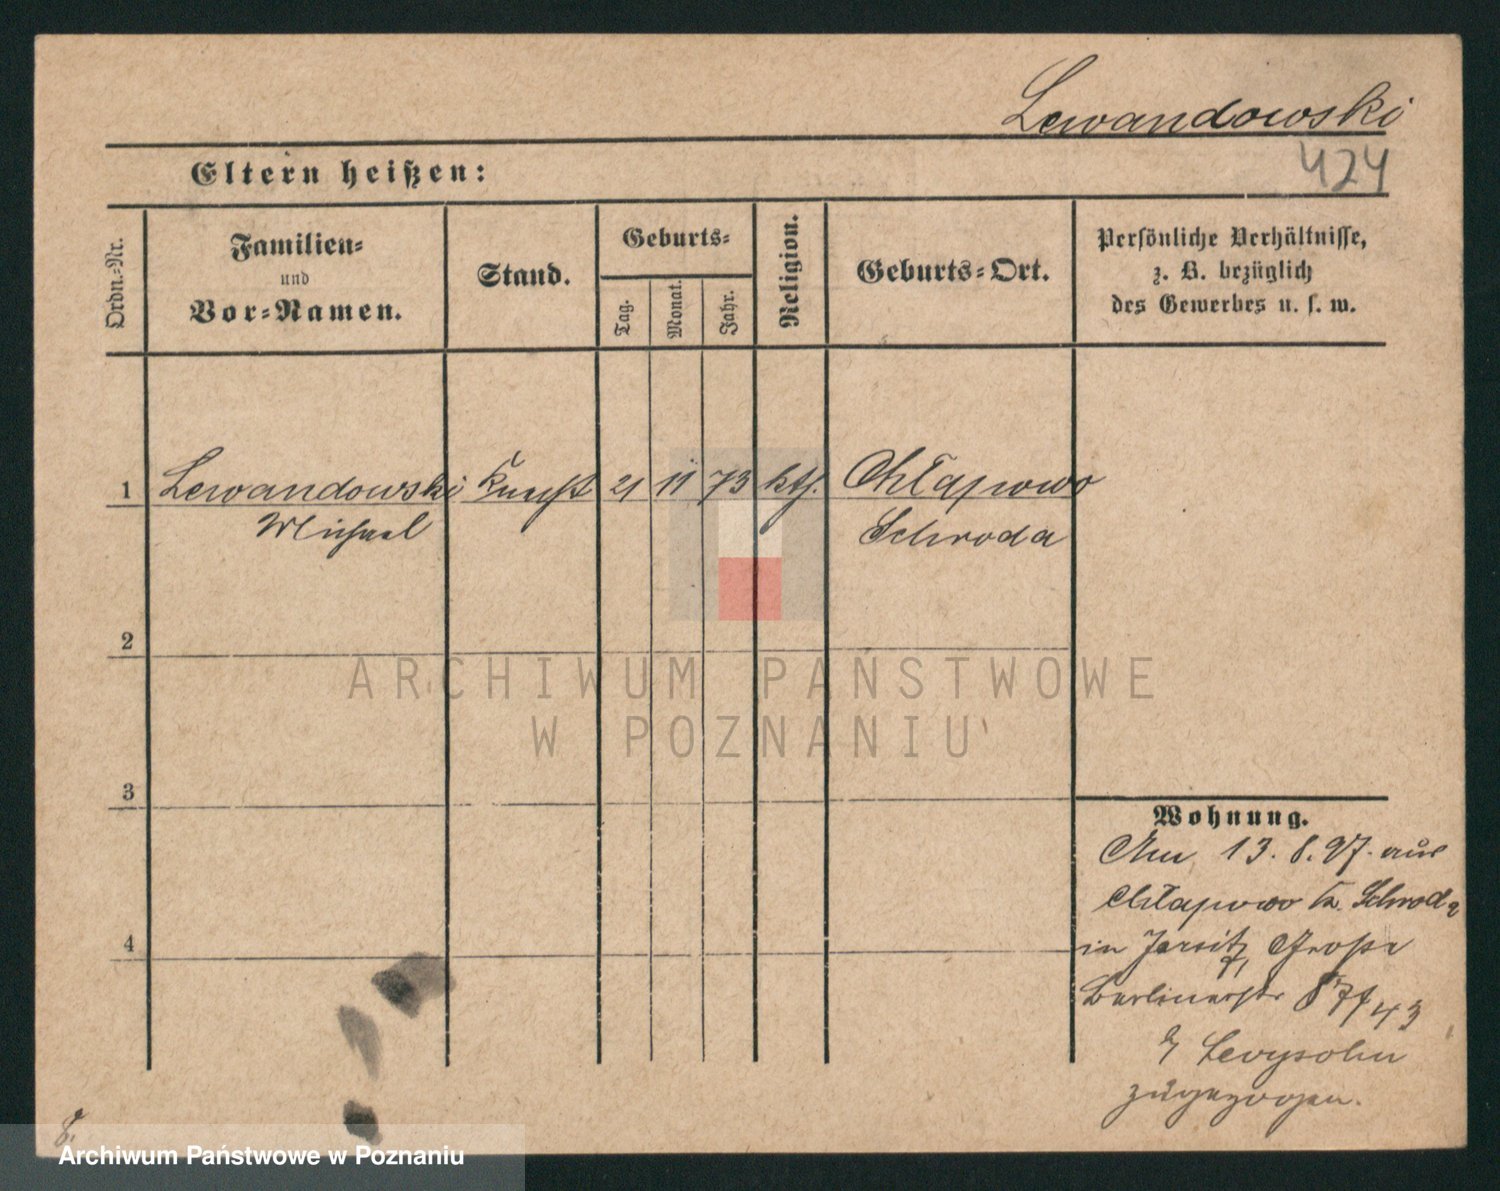 Lewandowski
424
Eltern heißen:
Ordn.-Nr.
Familien-
und
Vor-Namen.
Stand.
Geburts-
Tag.
Monat.
Jahr.
Religion.
Geburts-Ort.
Persönliche Verhältnisse,
z. B. bezüglich
des Gewerbes u. s. w.
1 Lewandowski Knecht 21 11 73 kth. Chłapowo
Michael Schroda
2
ARCHIWUM PAŃSTWOWE
W POZNANIU
3
4
Wohnung.
Am 13. 8. 97. aus
Chłapowo Kr. Schroda
in Jersitz, Große
Berlinerstr
b/ Levysohn
zugezogen.
Archiwum Państwowe w Poznaniu